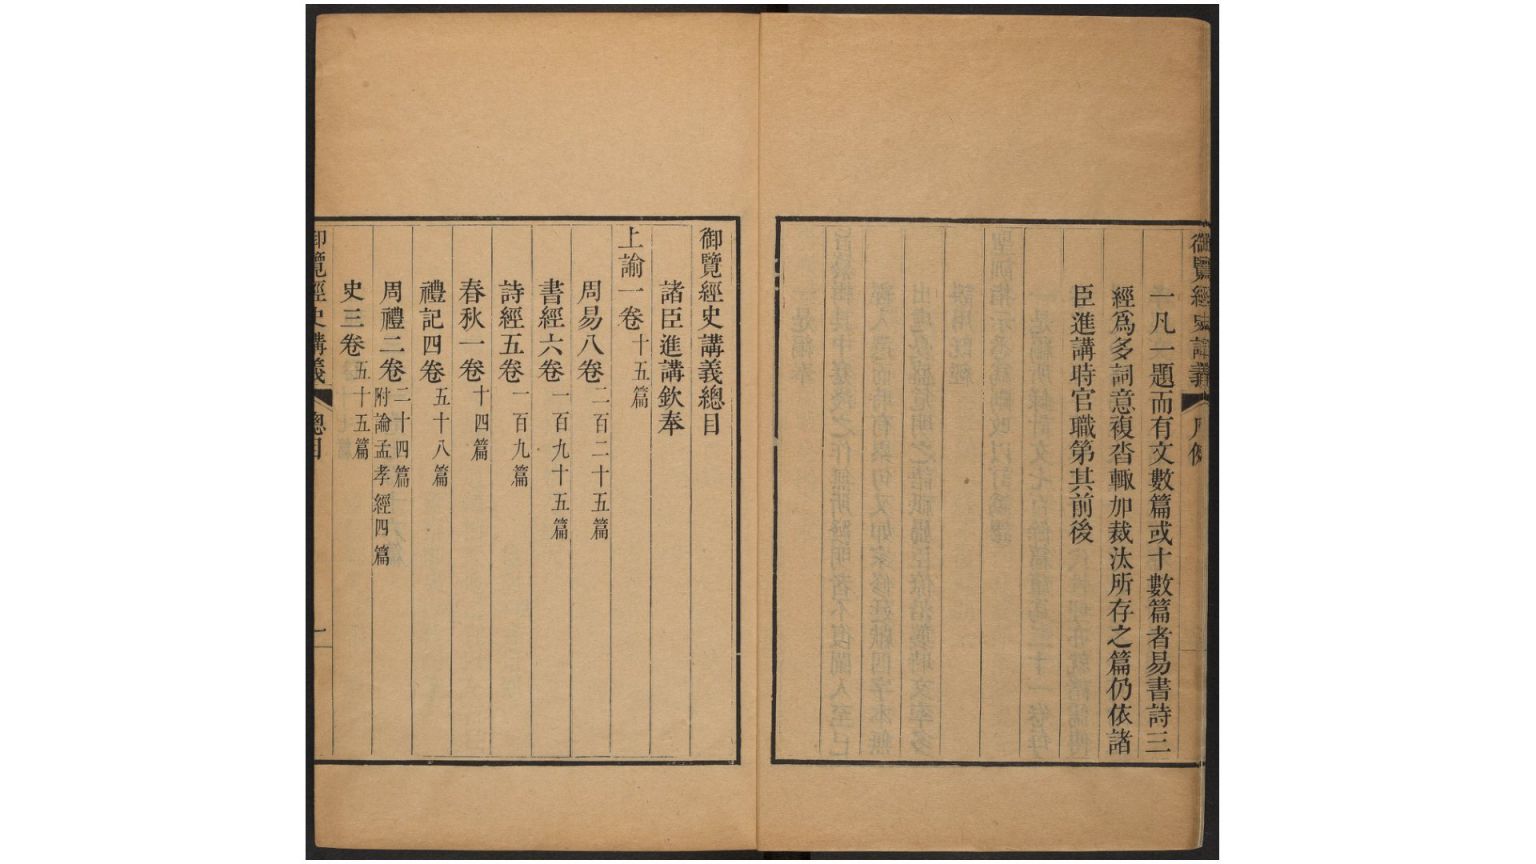 御覽經史講義
凡例
一凡一題而有文數篇或十數篇者易書詩三
經爲多詞意複沓輙加裁汰所存之篇仍依諸
臣進講時官職第其前後
御覽經史講義總目
諸臣進講欽奉
上諭一卷十五篇
周易八卷二百二十五篇
書經六卷一百九十五篇
詩經五卷一百九篇
春秋一卷十四篇
禮記四卷五十八篇
周禮二卷二十四篇
附論孟孝經四篇
史三卷五十五篇
御覽經史講義
總目
一